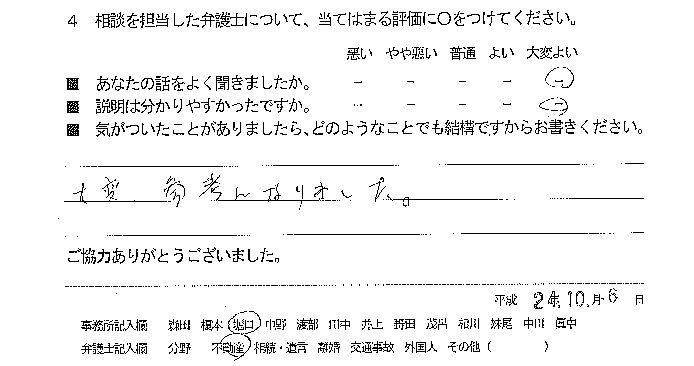 4 相談を担当した弁護士について、当てはまる評価に○をつけてください。
悪い やや悪い 普通 よい 大変よい
あなたの話をよく聞きましたか。 － － － － －
説明は分かりやすかったですか。 － － － － －
気がついたことがありましたら、どのようなことでも結構ですからお書きください。
大変、参考になりました。
ご協力ありがとうございました。
平成 24.10.月 6 日
事務所記入欄 榎本 堀口 中野 渡部 田中 井上 勝田 茂呂 相川 妹尾 中川 眞中
弁護士記入欄 分野 不動産 相続・遺言 離婚 交通事故 外国人 その他（ ）